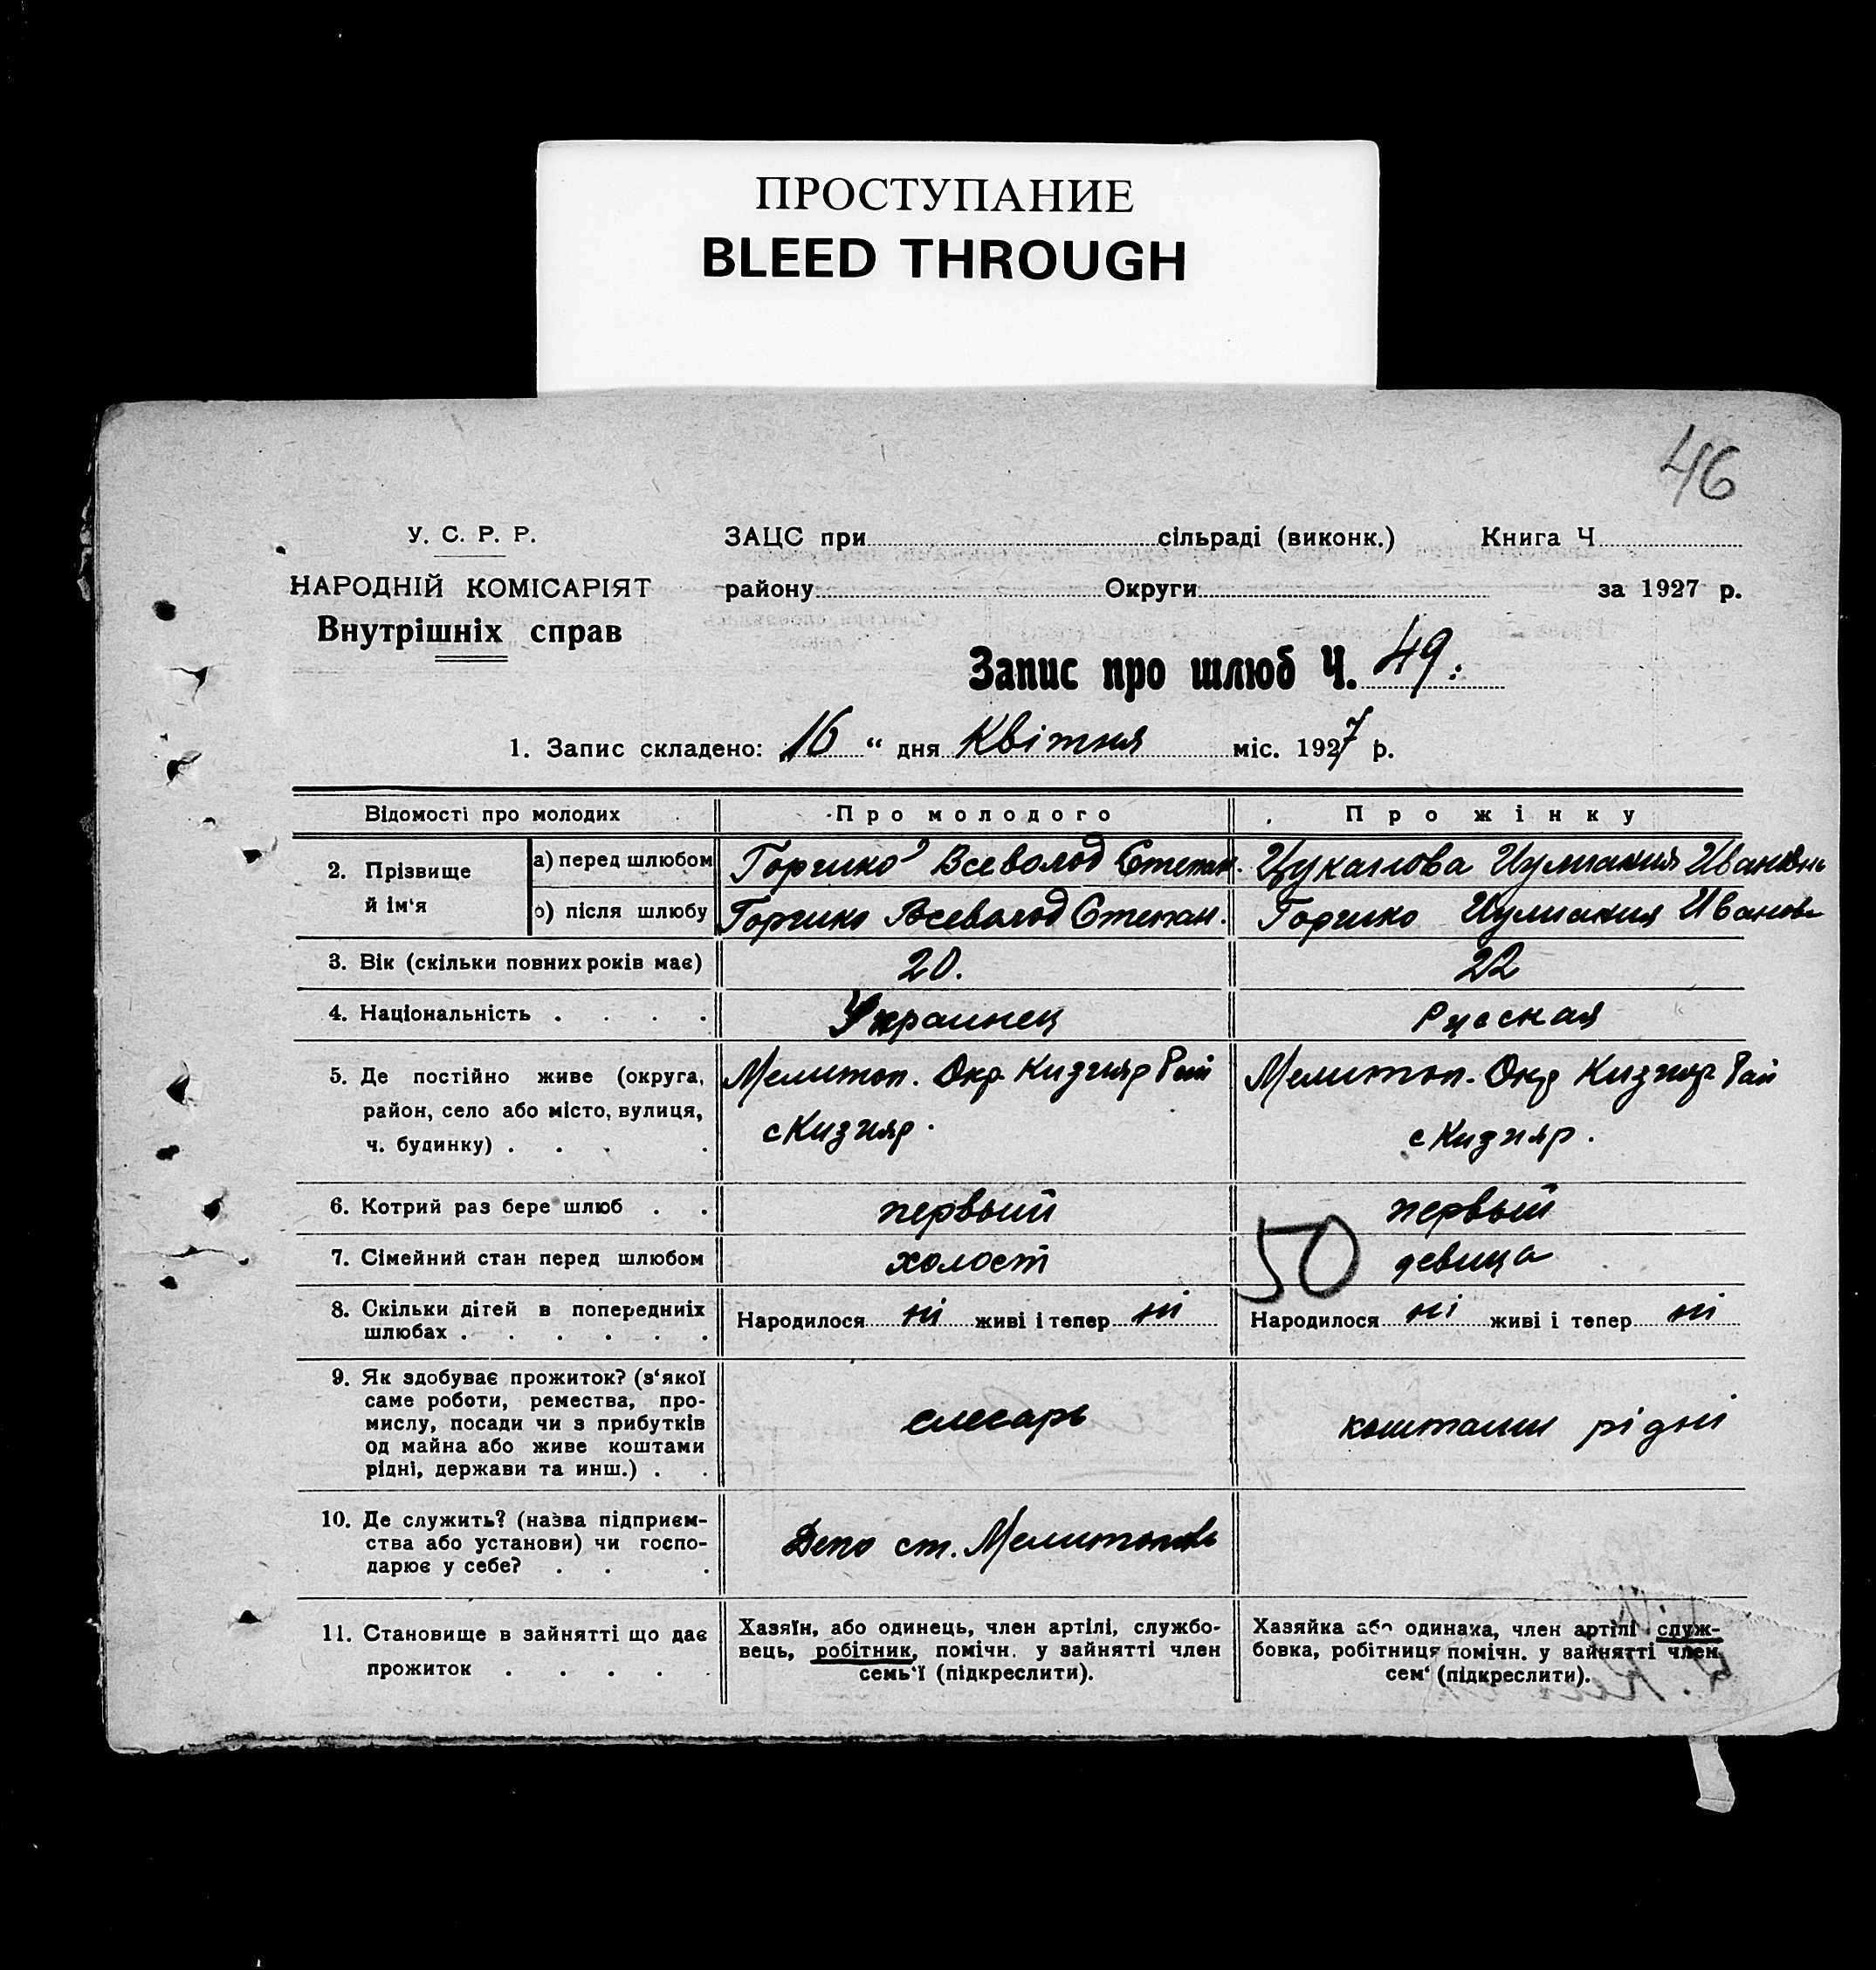 ПРОСТУПАНИЕ
BLEED THROUGH
46
У. С. Р. Р.
ЗАЦС при сільраді (виконк.) Книга Ч
НАРОДНІЙ КОМІСАРІЯТ
району Округи за 1927 р.
Внутрішніх справ
Запис про шлюб Ч. 49.
1. Запис складено: 16 “ дня Квітня міс. 1927 р.
Відомості про молодих Про молодого Про жінку
2. Прізвище й ім‘я
а) перед шлюбом Горчико Всеволод Степан. Цукагова Иванов
о) після шлюбу Горчико Всеволод Степан. Горчико Иванов
3. Вік (скільки повних років має) 20. 22
4. Національність . . . . Украинец Русская
5. Де постійно живе (округа, Мелитоп. Окр. Кизияр Рай Мелитоп. Окр Кизияр Рай
район, село або місто, вулиця, с Кизияр. с Кизияр.
ч. будинку) . . . .
6. Котрий раз бере шлюб . . первый первый
7. Сімейний стан перед шлюбом холост 50 девица
8. Скільки дітей в попередниіх Народилося ні живі і тепер ні Народилося ні живі і тепер ні
шлюбах . . . . . .
9. Як здобуває прожиток? (з‘якої
саме роботи, ремества, про-
мислу, посади чи з прибутків слесарь коштами рідні
од майна або живе коштами
рідні, держави та инш.) . .
10. Де служить? (назва підприєм-
ства або установи) чи госпо- Депо ст. Мелитополь
дарює у себе? . . .
11. Становище в зайнятті що дає
прожиток . . . . .
Хазяїн, або одинець, член артілі, службо-
вець, робітник, помічн. у зайнятті член
семь‘ї (підкреслити).
Хазяйка або одинака, член артілі служ-
бовка, робітниця помічн. у зайнятті член
сем‘ (підкреслити).